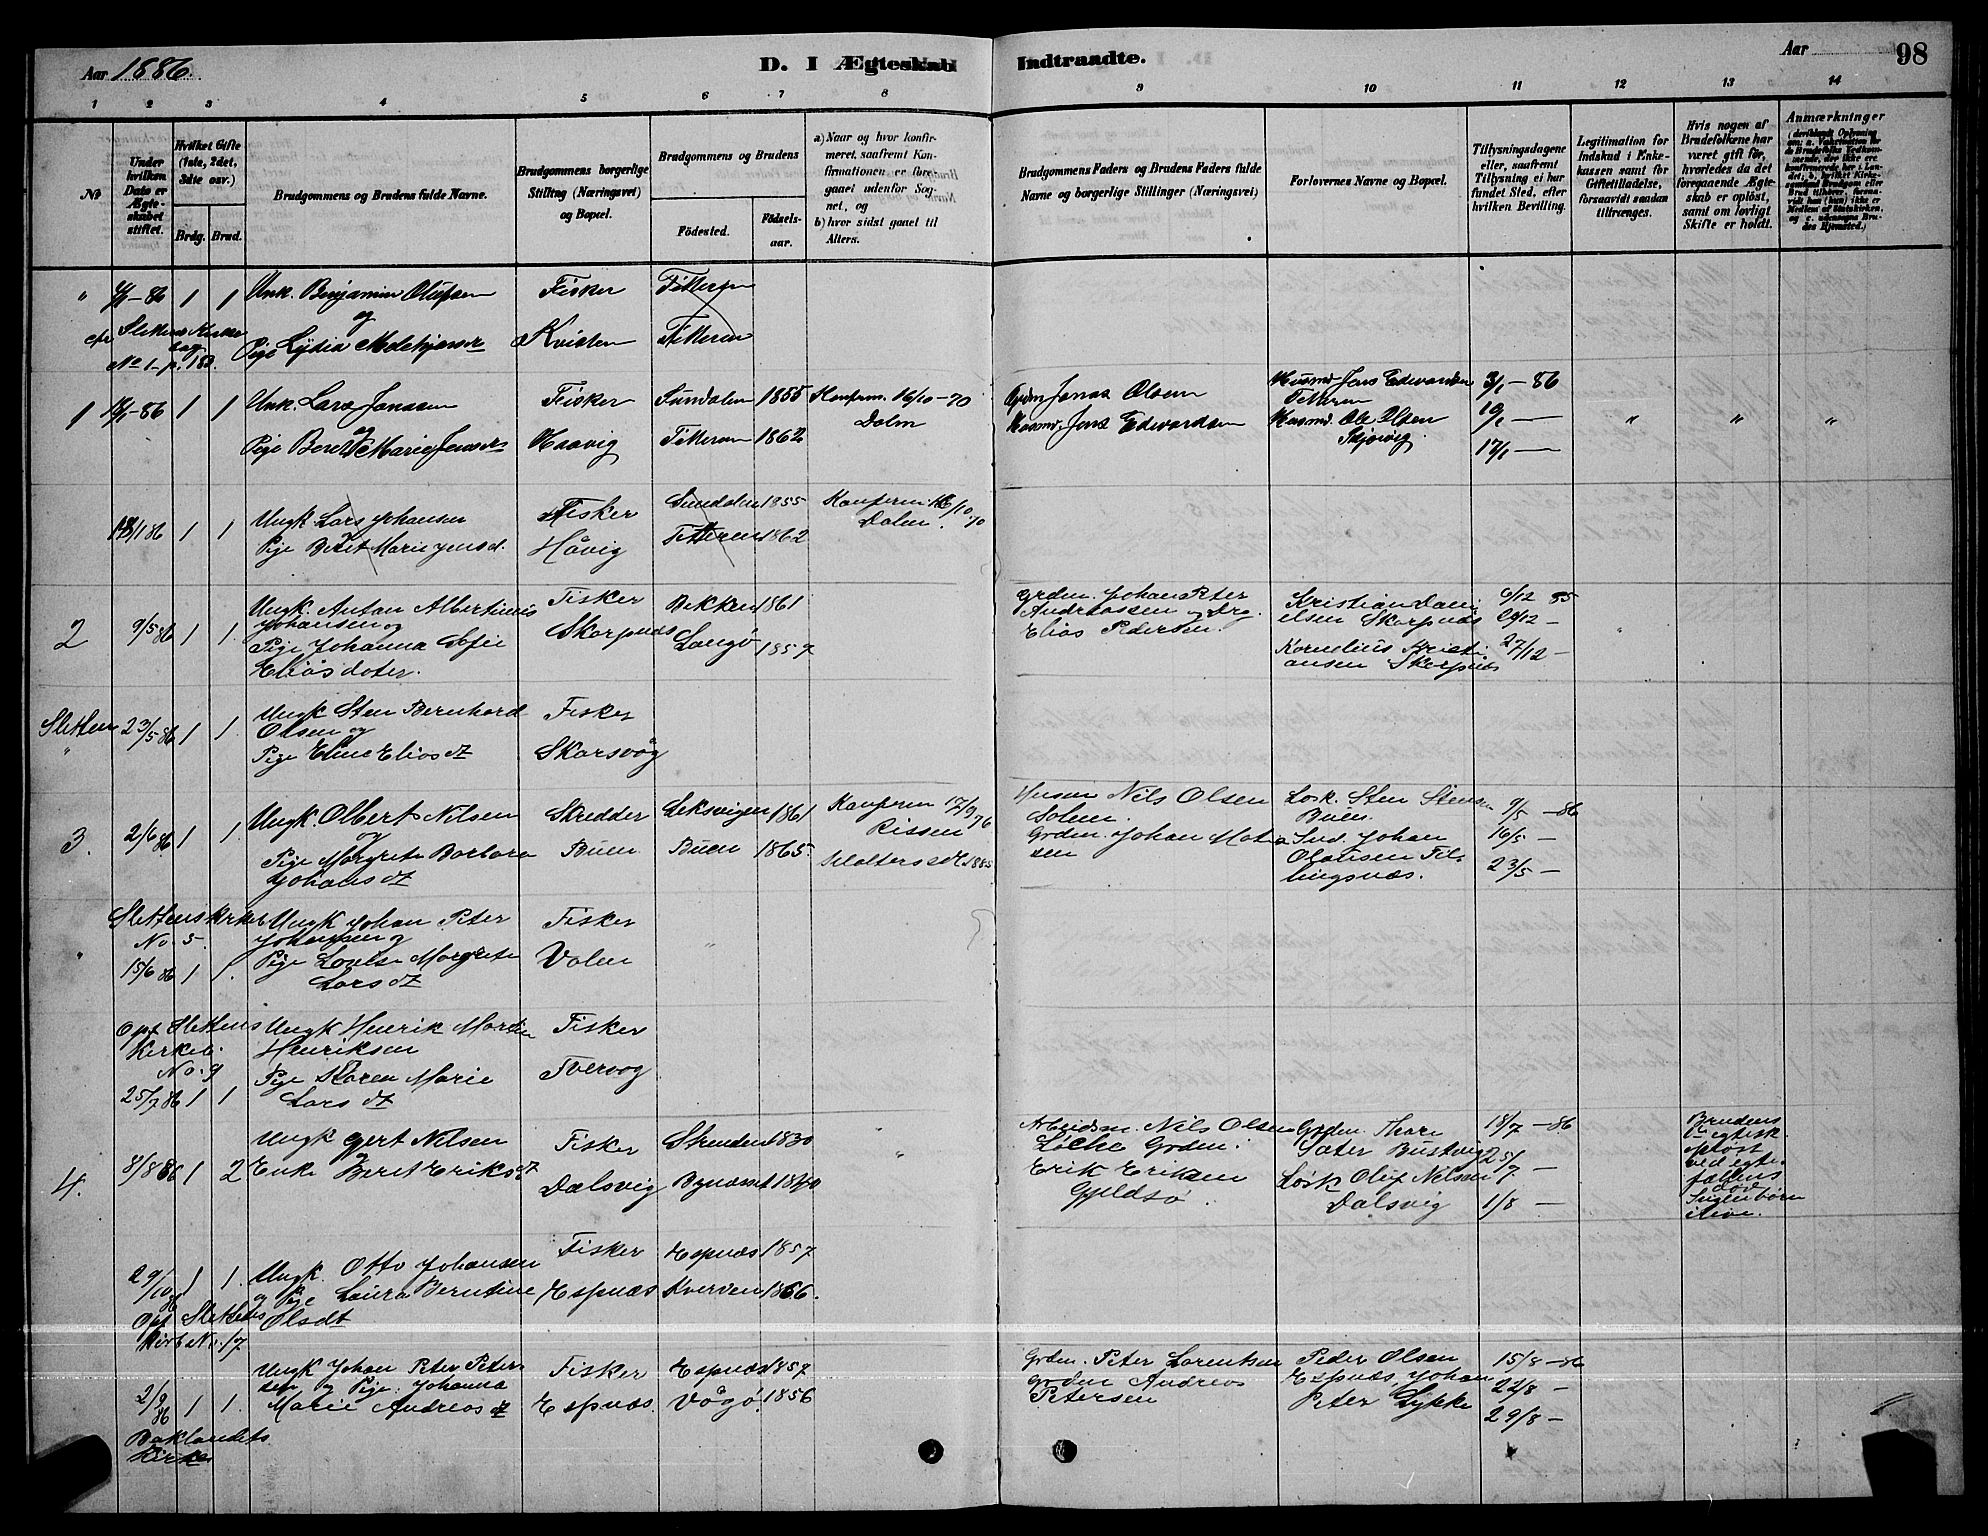 Aar 1886.
D. I Ægteskab Indtraadte.
Aar
98
1 2 3 4 5 6 7 8 9 10 11 12 13 14
No
Under hvilken Dato er Ægteskabet stiftet.
Hvilket Gifte (1ste, 2det, 3die osv.)
Brdg. Brud.
Brudgommens og Brudens fulde Navne.
Brudgommens borgerlige Stilling (Næringsvei) og Bopæl.
Brudgommens og Brudens
Fødested.
Fødselsaar.
a) Naar og hvor konfirmeret, saafremt Konfirmationen er foregaaet udenfor Sognet, og
b) hvor sidst gaaet til Alters.
Brudgommens Faders og Brudens Faders fulde Navne og borgerlige Stillinger (Næringsvei)
Forlovernes Navne og Bopæl.
Tillysningsdagene eller, saafremt Tillysning ei har fundet Sted, efter hvilken Bevilling.
Legitimation for Indskud i Enkekassen samt for Giftetilladelse, forsaavidt saadan tiltrænges.
Hvis nogen af Brudefolkene har været gift før, hvorledes da det foregaaende Ægteskab er opløst, samt om lovligt Skifte er holdt.
Anmærkninger
" –86 1 1 Unk. Benjamin Olufsen Fisker Titteren
og
Pige Lydia Kvisten Titteren
No 1 – p. 182.
1 –86 1 1 Unk. Lars Fisker Sundalen 1855 Konfirm. 16/10–70
Dolm
og
Pige Berit Marie Jensdr Haavig Titteran 1862
Gdm Jonas Olsen
Husmd. Jens Edvardsen
Husmd Jens Edvardsen
Titteran
Husmd. Ole Olsen
3/1 – 86
10/1 –
17/1 –
" " "
1 86 1 1 Ungk Lars Johansen Fisker Sundalen 1855 Konferm 16/10 70
Dolm
Pige Beret Marie Jensd. Håvig Titteren 1862
2 9/5 86 1 1. Ungk. Anton Albertinus Johansen og
Pige Johanna Sofie
Eliasdoter.
Fisker
Skarpnæs
Bekken 1861
Langø 1857
Grdm. Johan Peter
Andreassen og Grd.
Elias Pedersen.
Kristian Dani
elsen Skarpnæs
Kornelius Kristi
ansen Skarpnæs
6/12 85
20/12 –
27/12 –
Sletten
" 23/5 86 1 1. Ungk Sten Bernhard
Olsen og
Pige Eline Elias dt
Fisker
Skarsvåg
3. 2/6 86 1 1. Ungk. Olbert Nilsen
og
Pige Margrete Barbara
Johans dt
Skredder
Buen
Leksvigen 1861
Buen 1865.
Konferm 17/9 76
Rissen
1885
Husm Nils Olsen
Solem.
Grdm. Johan Mati
sen
Løsk. Sten Stensen
Buen.
Ind. Johan
Olausen Fil
lingsnæs.
9/5 –86
16/5 –
23/5 –
" Slettens Kirkeb
No. 5.
15/6 86 1 1. Ungk Johan Peter
Johansen og
Pige Lovise Margrete
Lars dt
Fisker
Valen
Opf Slettens
Kirkeb.
No. 9
25/7 86 1 1 Ungk Henrik Martin
Henriksen
Pige Karen Marie
Lars dt
Fisker
Tvervåg
4. 8/8 86 1 2 Ungk Gjert Nilsen
og
Enke Beret Eriksdt
Fisker
Dalsvig
Strenden 1830
Bynæsset 1840
Arbeidsm. Nils Olsen
Grdm.
Erik Eriksen
Grdm. Thore
Sæter Bustvig
Løsk Oluf Nilsen
Dalsvig
18/7 –86
25/7 –
1/8 –
Brudens
1ste egtesk.
opløst
ved egte
fællens
død
Ingen børn
i live.
29/10 86 1 1. Ungk. Otto Johansen
og Pige Laura Berntine
Olsdt
Opf Slettens
Kirkb No. 17
Fisker
Espnæs
Espnæs 1857
Kverven 1866.
2/9 86 1 1. Ungk Johan Peter Peter
sen og Pige. Johanna
Marie Andreas dt
Baklandets
Kirke
Fisker
Espnæs.
Espnæs 1857
Vågø. 1856
Grdm. Peter Lorentsen
Grdm Andreas
Petersen
Peder Olsen
Espnæs, Johan
Peter Lykke
15/8 –86
22/8 –
29/8 –